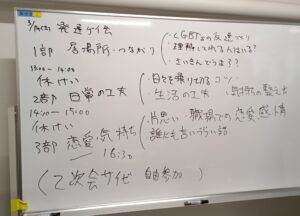 3/14(土) 発達ゲイ会
1部 居場所・つながり
・LGBTsの友達づくり
・理解してくれる人はいる?
・さいきんどうよ??
13:00〜14:00
休けい
2部 日常の工夫
・日々を乗り切るコツ
・生活の工夫 ・気持ちの整え方
14:10〜15:00
休けい
3部 恋愛、気持ち
〜16:30
・片思い・職場での恋愛感情
・誰にも言いづらい話
(2次会サイゼ 自由参加)